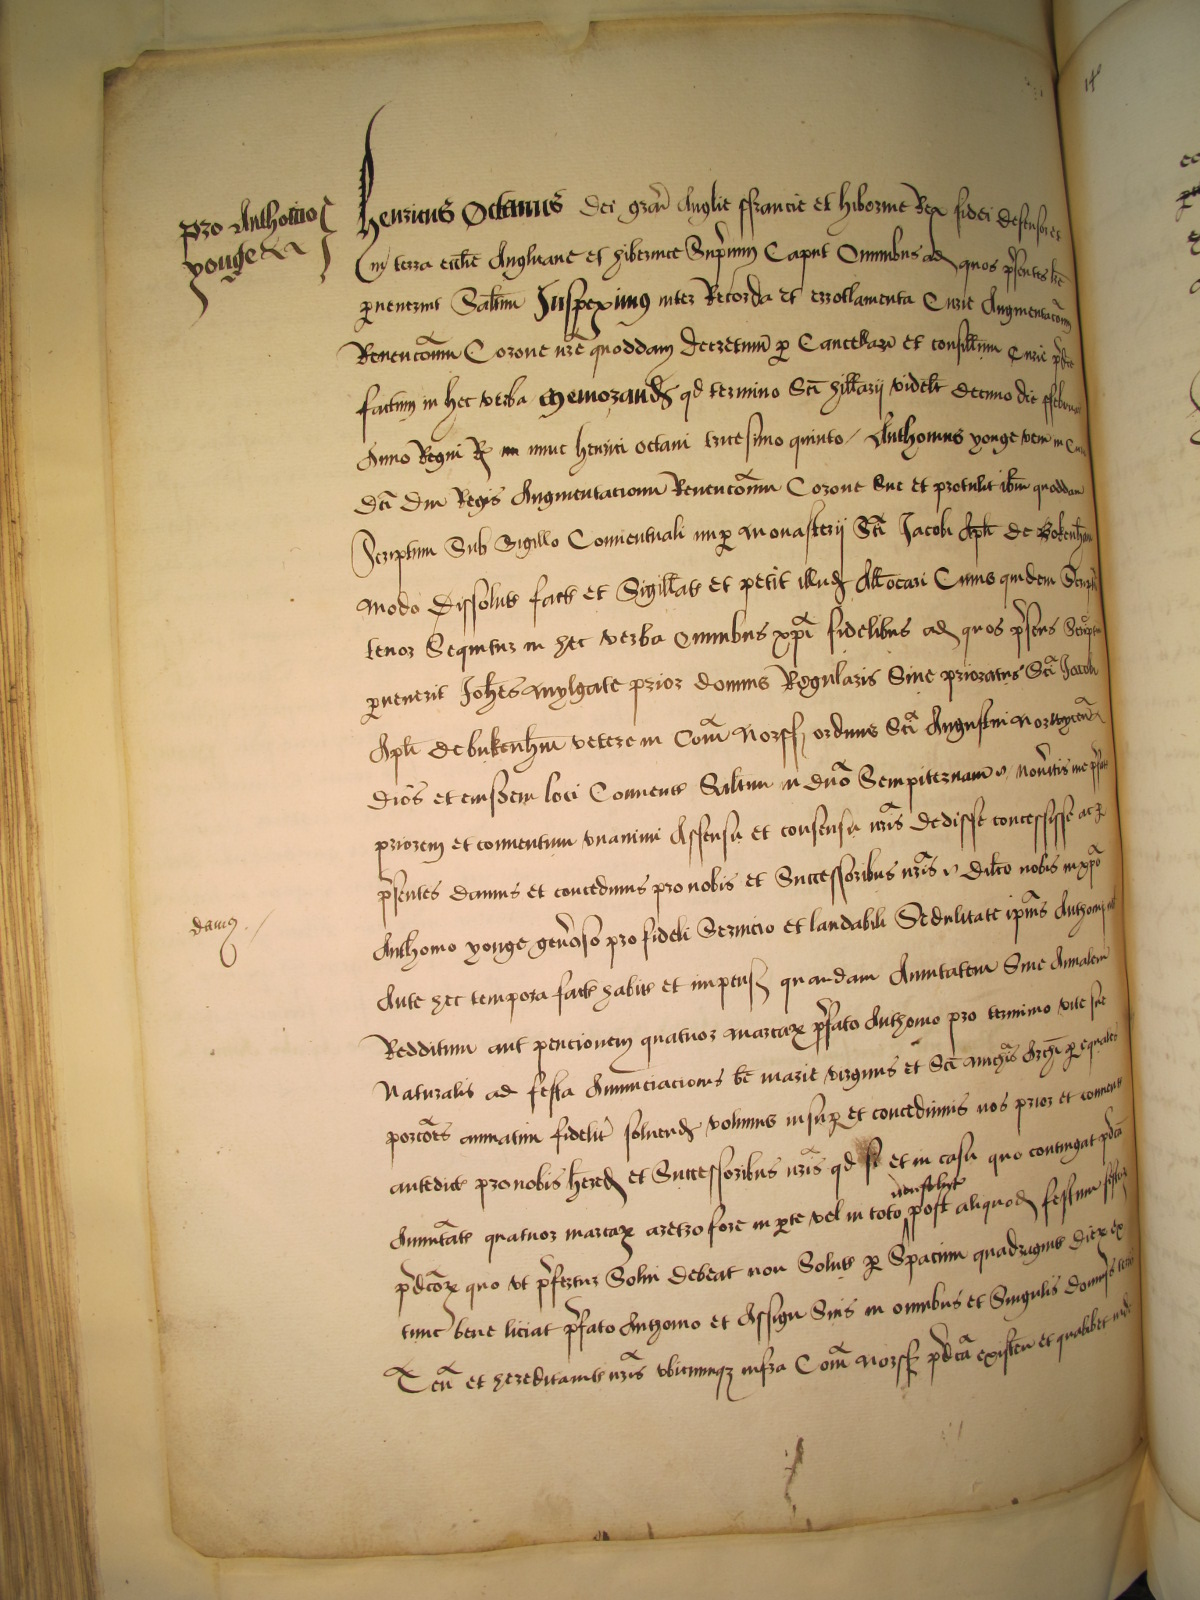 pro Anthonio
yonge
Henricus Octauus dei gra Anglie ffrancie et hibernie Rex fidei defensor et
in terra ecclie Anglicane et hibernice Supremu Caput Omnibus ad quos psentes lre
puenerint Saltm Inspeximus inter Recorda et irrotlamenta Curie Augmentacōnu
Reuencōnum Corone nre quoddam decretum p Cancellar et consilium Curie pdce
factum in hec verba Memorand qd termino Sci hillarij videlt decimo die ffebruar
Anno Regni R nunc henrici octaui tricesimo quinto / Anthonius yonge ven in Cur
dci dni Regis Augmentacionu Reuencōnum Corone sue et protulit ibm quoddam
Scriptum Sub Sigillo Conuentuali nup Monasterij Sci Jacobi Apli de Bokenham
modo dissolut fact et Sigillat et petit illud Allocari Cuius quidem Script
tenor Sequitur in hec verba Omnibus xpi fidelibus ad quos psens Scriptu
puenerit Johes Mylgate prior domus Regularis Siue prioratus Sci Jacobi
Apli de bukenhm vetere in Com Norff ordinis Sci Augustini Norwycen
dios et eiusdem loci Conuent Saltm in dno Sempiternam nouitis me pfat
priorem et conuentum vnanimi Assensu et consensu nris dedisse concessisse ac p
psentes damus et concedimus pro nobis et Successoribus nris dilco nobis in xpo
damus /
Anthonio yonge genoso pro fideli Seruicio et laudabili Sedulitate ipius Anthonij
Ante hec tempora fact habit et impens quandam Annitatem Siue Annalem
Redditum aut pencionem quatuor marcar pfato Anthonio pro termino vite sue
Naturalis ad festa Annunciacionis be marie virginis et Sci michis Archi p equales
porcōes annatim fidelit soluend volumus insup et concedimus nos prior et conuent
antedict pro nobis hered et Successoribus nris qd si et in casu quo contingat pdca
Annutat quatuor marcar aretro fore in pte vel in toto
non solut
post aliquod festum festor
pdcor quo vt pfertur Solui debeat non Solut p Spacium quadragint dier ex
tunc bene liciat pfato Anthonio et Assign Suis in omnibus et Singulis
Ten et hereditament nris vbicumq infra Com Norff pdca existen et qualibet inde